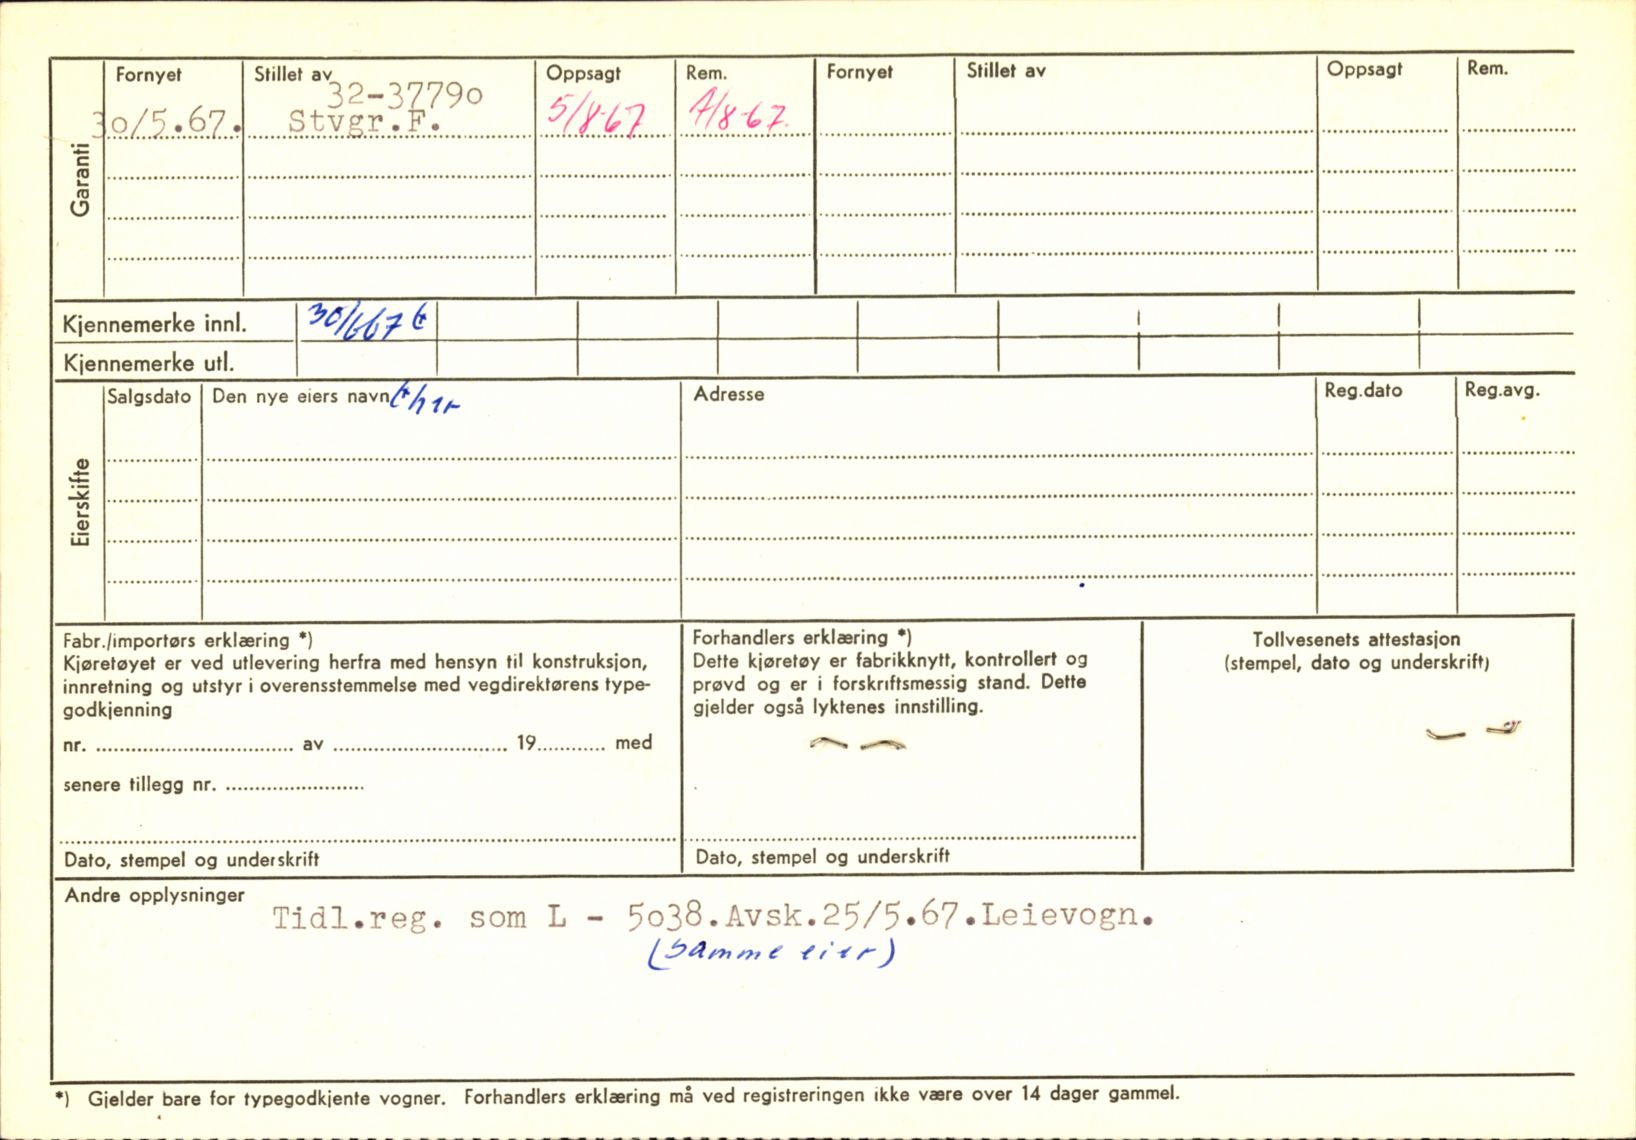 Garanti
Fornyet Stillet av Oppsagt Rem. Fornyet Stillet av Oppsagt Rem.
32-3779o
3o/5.67. Stvgr.F. 5/8-67 7/8-67.
Kjennemerke innl. 30/667
Kjennemerke utl.
Eierskifte
Salgsdato Den nye eiers navn Adresse Reg.dato Reg.avg.
Fabr./importørs erklæring *)
Kjøretøyet er ved utlevering herfra med hensyn til konstruksjon,
innretning og utstyr i overensstemmelse med vegdirektørens type-
godkjenning
nr. .................................. av .............................. 19............ med
senere tillegg nr. ........................
Dato, stempel og underskrift
Forhandlers erklæring *)
Dette kjøretøy er fabrikknytt, kontrollert og
prøvd og er i forskriftsmessig stand. Dette
gjelder også lyktenes innstilling.
Dato, stempel og underskrift
Tollvesenets attestasjon
(stempel, dato og underskrift)
Andre opplysninger
Tidl.reg. som L - 5o38.Avsk.25/5.67.Leievogn.
(Samme eier)
*) Gjelder bare for typegodkjente vogner. Forhandlers erklæring må ved registreringen ikke være over 14 dager gammel.